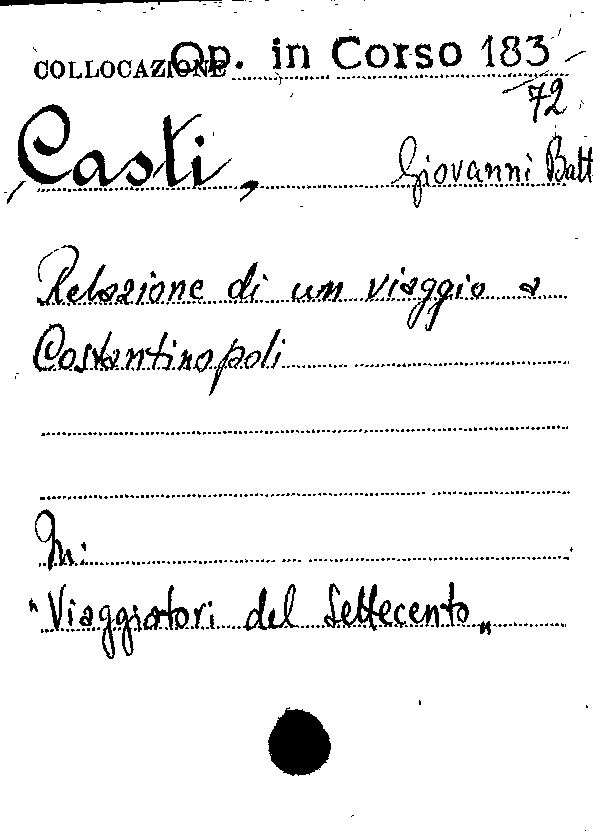 COLLOCAZIONE Op. in Corso 183
72
Casti, Giovanni Batt
Relazione di un viaggio a
Costantinopoli
In:
"Viaggiatori del Settecento"